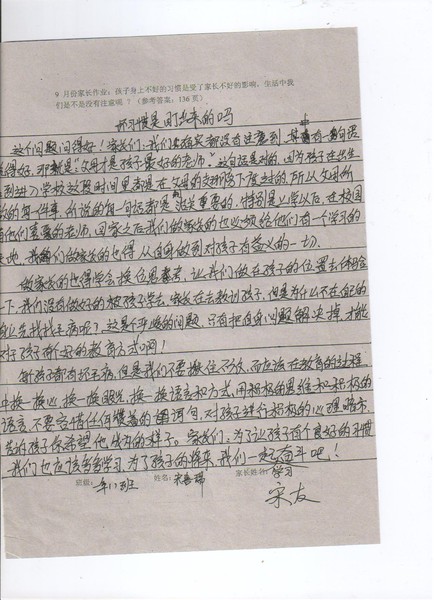 9 月份家长作业：孩子身上不好的习惯是受了家长不好的影响，生活中我
们是不是没有注意呢？（参考答案：136 页）
坏习惯是盯出来的吗
这个问题问得好！家长们，我们也许实都没有注意到，其中有一句话
说得好，那就是"父母才是孩子最好的老师"这句话是对的，因为孩子在出生
到进入学校这段时间里都是在父母的支吾下度过的，所以父母所
做的每一件事，所说的每一句话都是至关重要的，特别是上学以后，在校园
有他们喜爱的老师，回家之后我们做家长的也必须给他们有一个学习的
天地，我们做家长的也得从自身做到对孩子有益的一切。
做家长的也得学会换位思考，让我们做在孩子的位置去体会
一下，我们没有做好的被孩子学去，家长在去教训孩子，但是为什么不在自己的
身上先找找毛病呢？这是个严峻的问题，只有把自身的问题解决掉，才能
对孩子有个好的教育方式啊！
每个孩子都有坏毛病，但是我们不要揪住不放，而应该在教育的过程
中换一换心，换一换眼光，换一换语言和方式，用积极的思维和积极的
语言，不要吝惜任何赞善的词句，对孩子进行积极的心理暗示，
告诉孩子你希望他成为的样子。家长们，为了让孩子有个良好的习惯
我们也应该多多学习，为了孩子的将来，我们一起奋斗吧！
学习
班级： 年(1)班 姓名：宋 瑞 家长姓名：
宋友